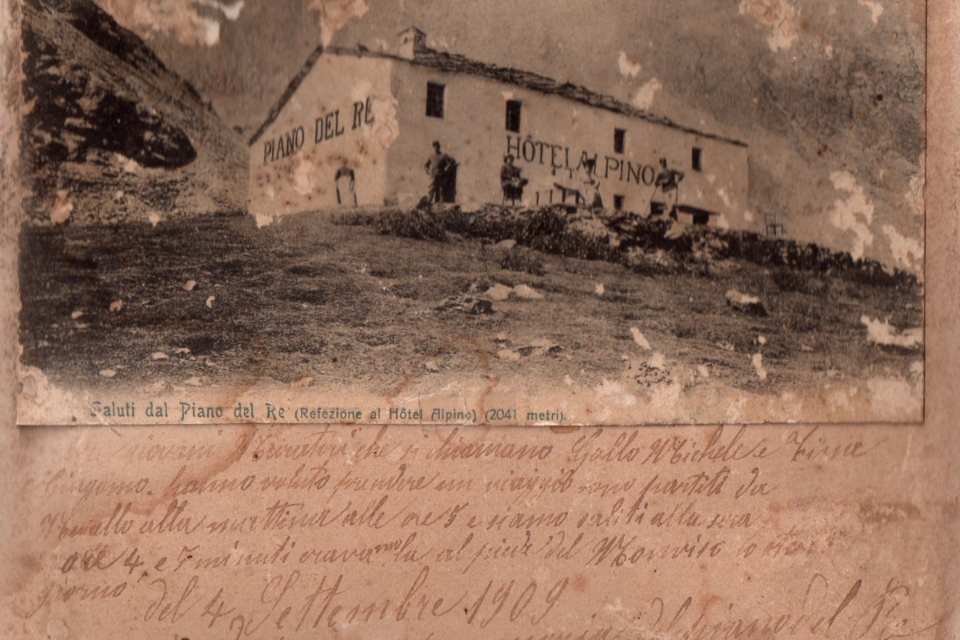 PIANO DEL RE
HÔTEL ALPINO
Saluti dal Piano del Re (Refezione al Hôtel Alpino) (2041 metri).
giovani Muratori che si chiamano Gallo Michele e
hanno voluto prendere un viaggio sono partiti da
alla mattina alle ore 5 e siamo saliti alla sera
ore 4, e 7 minuti eravamo la al piede del Monviso
giorno
del 4 Settembre 1909
del piano del Re